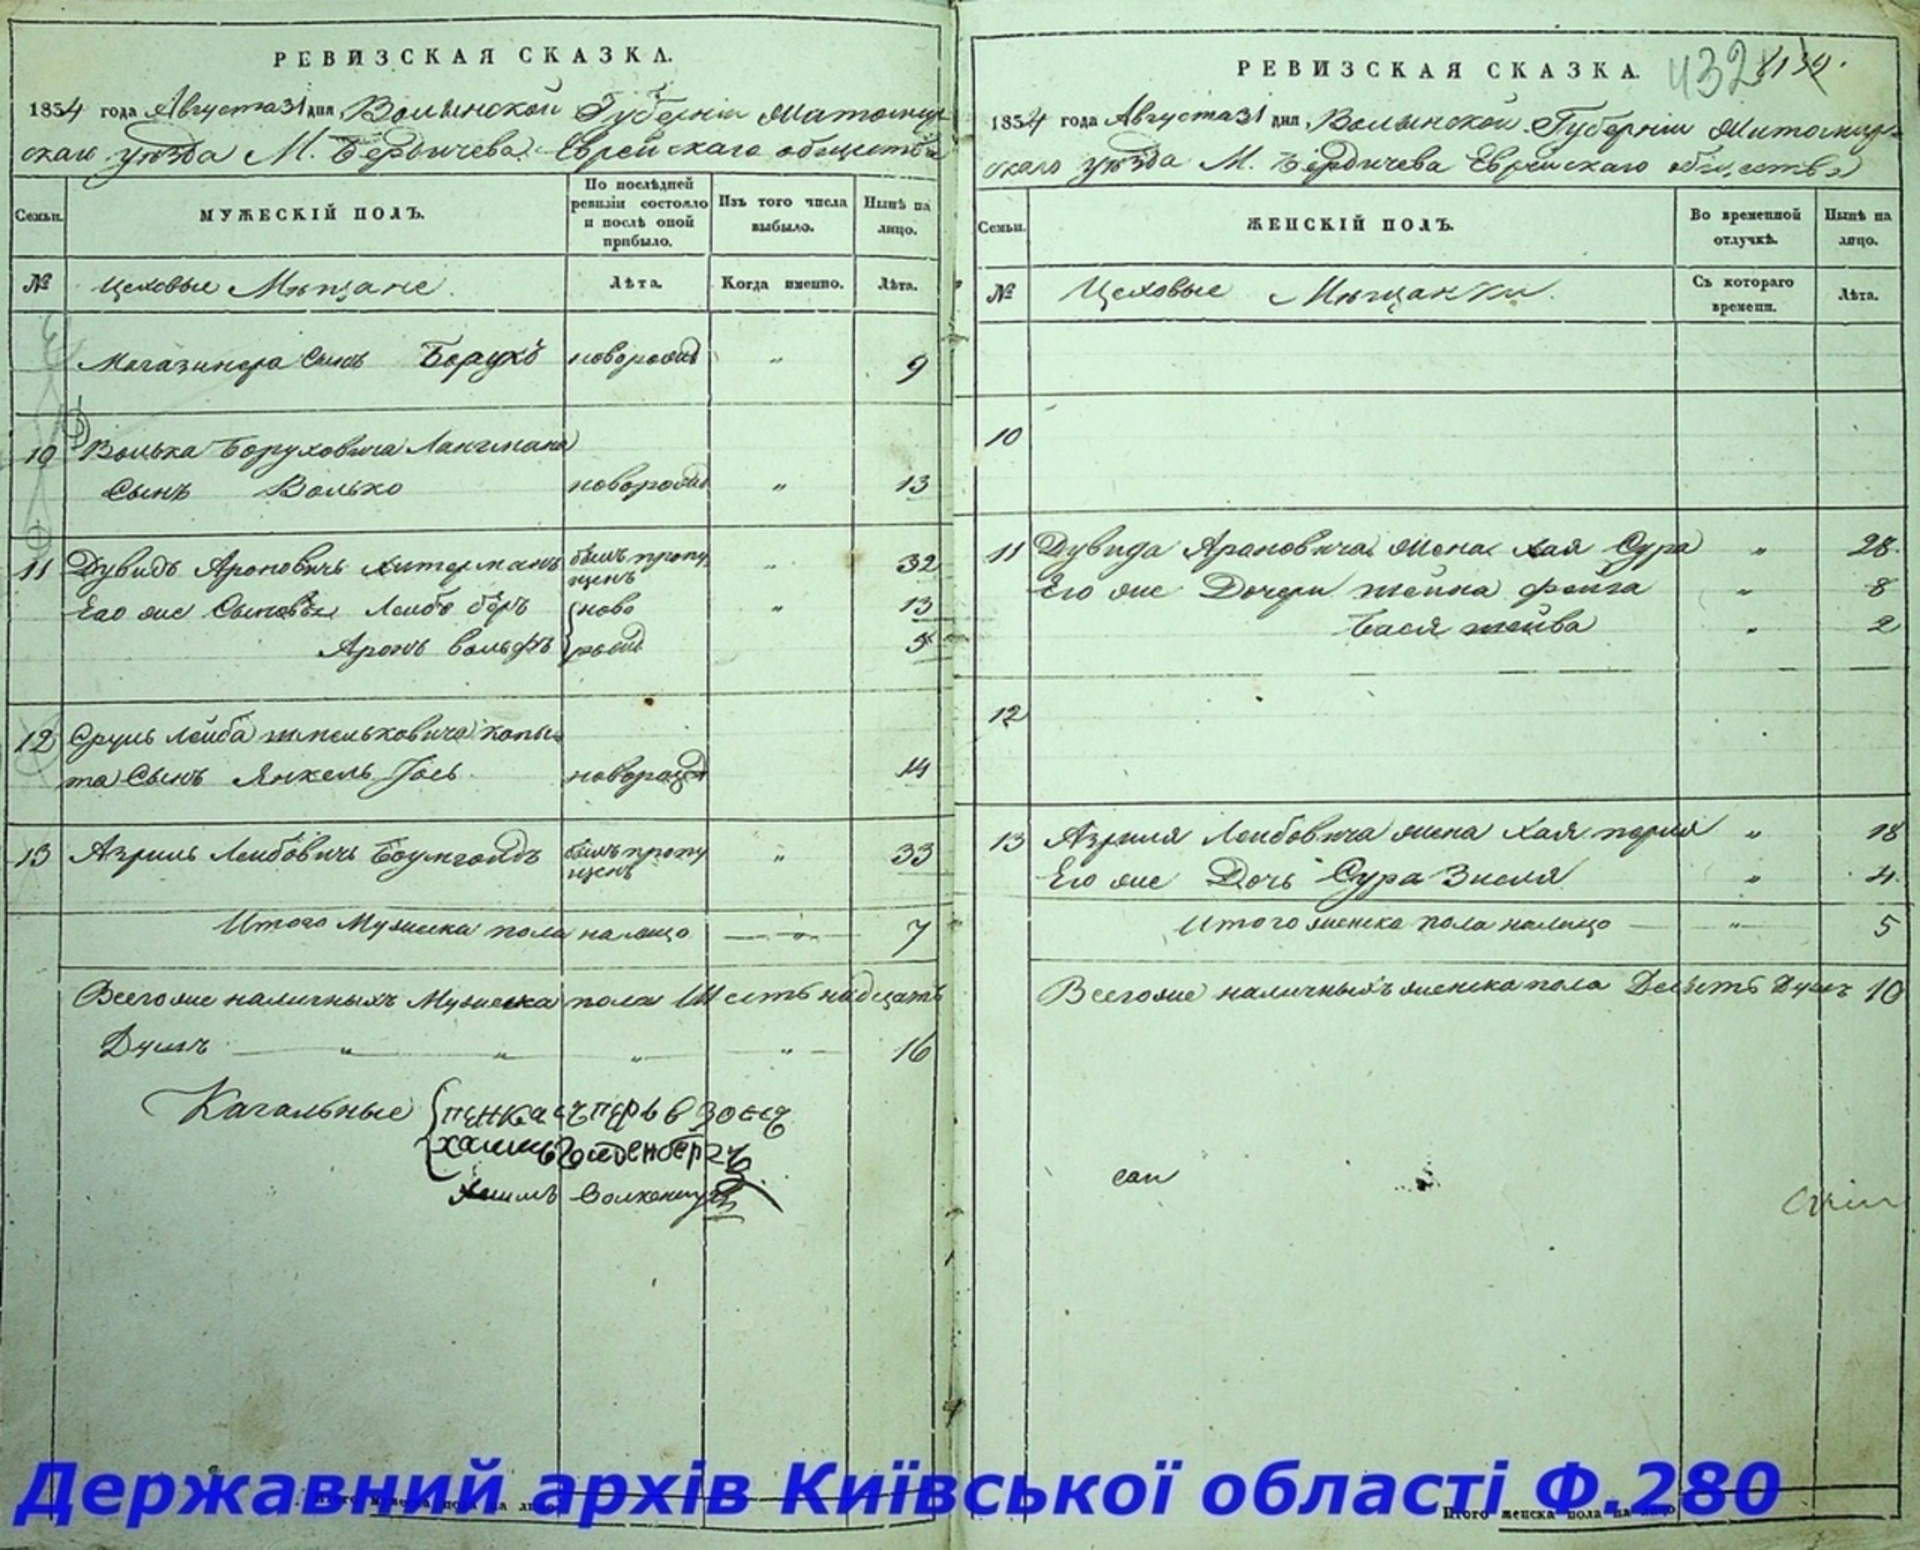 РЕВИЗСКАЯ СКАЗКА.
1854 года Августа 31 дня, Волынской Губерніи Житомир-
скаго уѣзда М. Бердичева Еврейскаго общества
Семьи.
МУЖЕСКІЙ ПОЛЪ.
По послѣдней ревизіи состояло и послѣ оной прибыло.
Изъ того числа выбыло.
Нынѣ на лицо.
№
Цеховые Мѣщане.
Лѣта.
Когда именно.
Лѣта.
Магазинера Сынъ Борухъ новорожд „ 9
10 Волька Боруховича Лангмана
Сынъ Волько новорожд „ 13
11 Дувидъ Ароновичъ Хитерманъ былъ пропу щенъ „ 32
Его же Сыновья Лейба Беръ ново „ 13
Аронъ Вольфъ рожд 5
12 Сруль Лейба Шмельковича Копы-
та Сынъ Янкель Іось новорожд 14
13 Азриль Лейбовичъ Боумголдъ былъ пропу щенъ „ 33
Итого Мужеска пола на лицо — „ — 7
Всего же наличныхъ Мужеска пола Шестьнадцать
Душъ — „ „ „ „ — 16
Кагальные
Хаимъ Голденбергъ
РЕВИЗСКАЯ СКАЗКА.
432
1854 года Августа 31 дня, Волынской Губерніи Житомир-
скаго уѣзда М. Бердичева Еврейскаго общества
Семьи.
ЖЕНСКІЙ ПОЛЪ.
Во временной отлучкѣ.
Нынѣ на лицо.
№
Цеховые Мѣщанки.
Съ котораго времени.
Лѣта.
10
11 Дувида Ароновича жена Хая Сура „ 28
Его же Дочери Шейна Фейга „ 8
Бася Шейва „ 2
12
13 Азриля Лейбовича жена Хая Перля „ 18
Его же Дочь Сура Зисля „ 4
Итого женска пола налицо — „ — 5
Всего же наличныхъ женска пола Десять Душъ 10
Итого мужеска пола на лицо
Итого женска пола на лицо
Державний архів Київської області Ф.280